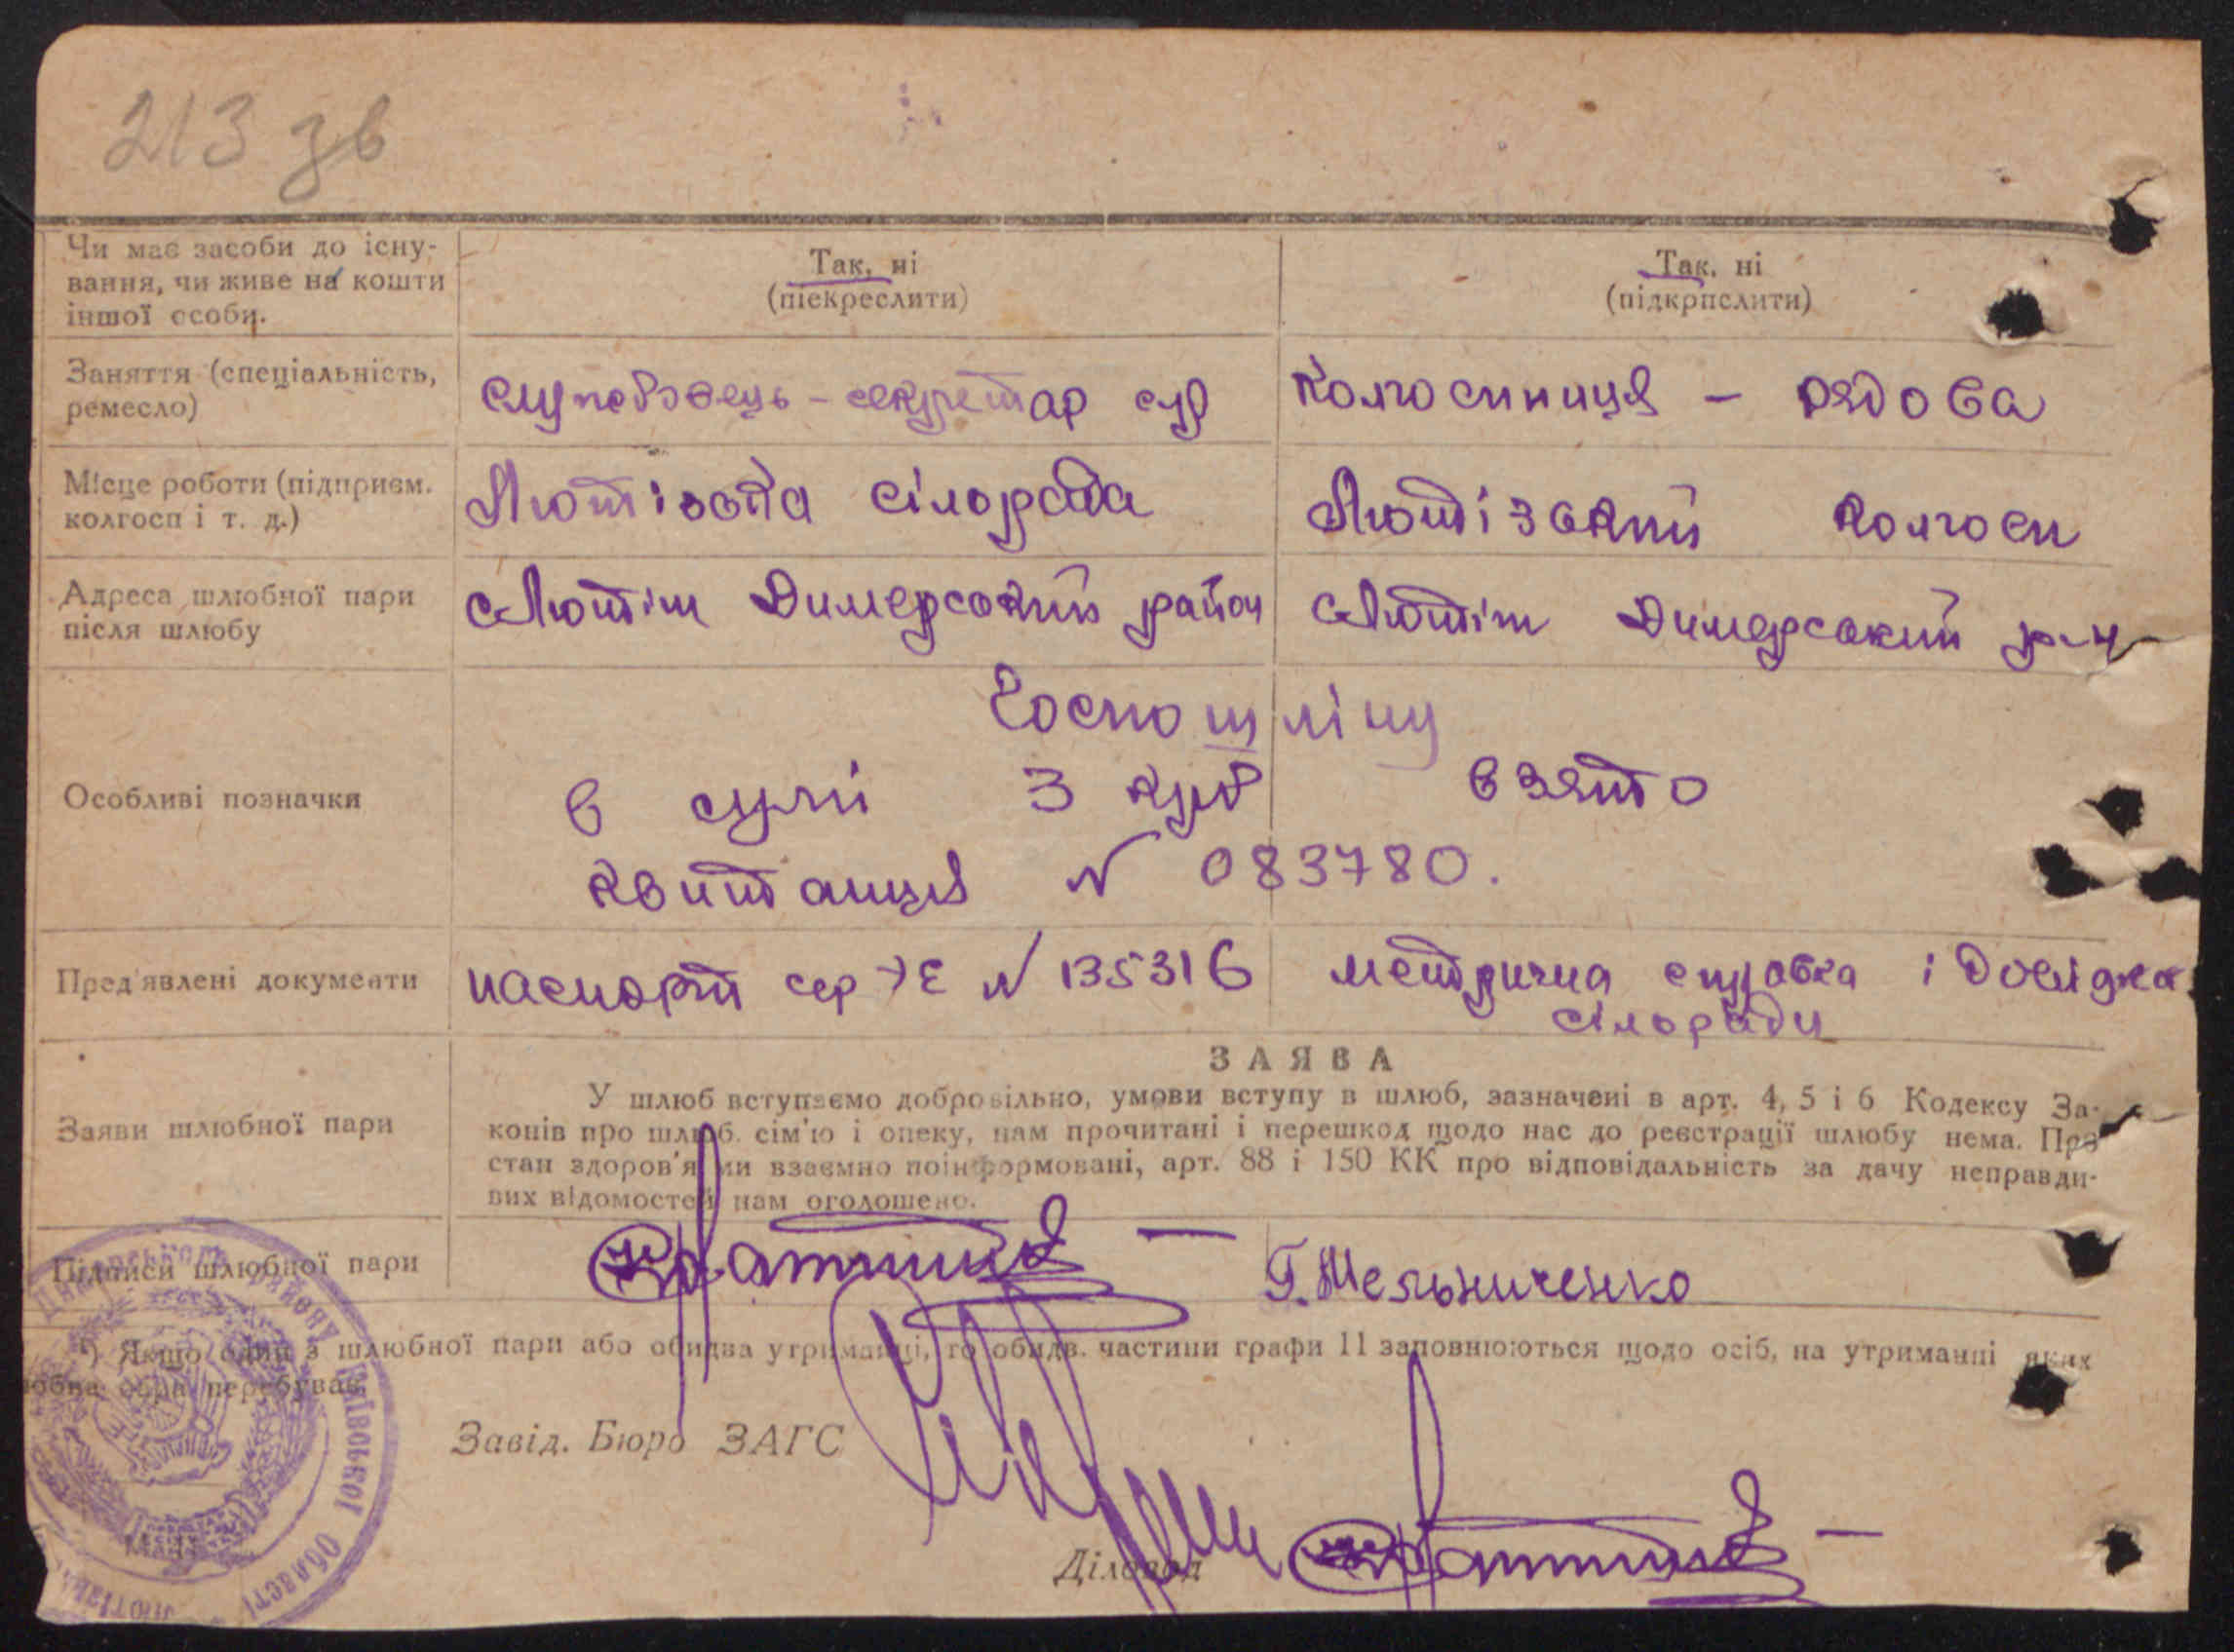 213 зв
Чи має засоби до існу-
вання, чи живе на кошти
іншої особи.
Так, ні
(піекреслити)
Так, ні
(підкрпслити)
Заняття (спеціальність,
ремесло)
службовець - секретар с/р
Колгоспниця - рядова
Місце роботи (підприєм.
колгосп і т. д.)
Лютізька сілорада
Лютізский колгосп
Адреса шлюбної пари
після шлюбу
с Лютіж Димерський район
с Лютіж Димерський р-н
Особливі позначки
Госпошліну
в сумі 3 крб взято
квитанція N 083780.
Пред'явлені документи
паспорт сер N 135316
метрична справка і довідка
сілоради
ЗАЯВА
Заяви шлюбної пари
У шлюб вступаємо добровільно, умови вступу в шлюб, зазначені в арт. 4, 5 і 6 Кодексу За-
конів про шлюб. сім'ю і опеку, нам прочитані і перешкод щодо нас до реєстрації шлюбу нема. Про
стан здоров'я ми взаємно поінформовані, арт. 88 і 150 КК про відповідальність за дачу неправди-
вих відомостей нам оголошено.
Підписи шлюбної пари
Г. Мельниченко
*) Якщо один з шлюбної пари або обидва утриманці, то обидв. частини графи 11 заповнюються щодо осіб, на утриманні яких
перебуває
Завід. Бюро ЗАГС
Діловод
Київської Області